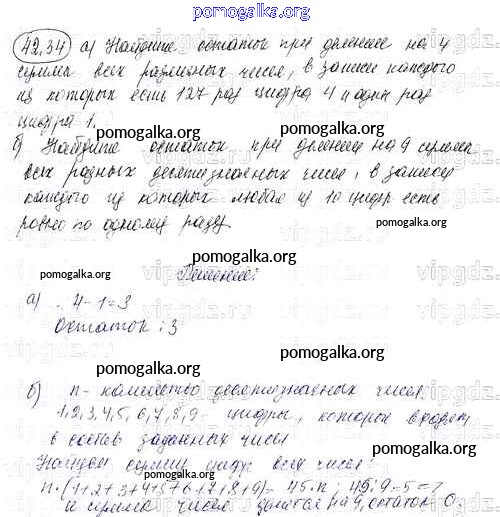 pomogalka.org
42.34 а) Найдите остаток при делении на 4
суммы всех различных чисел, в записи каждого
из которых есть 127 раз цифра 4 и один раз
цифра 1.
pomogalka.org
б) Найдите остаток при делении на 9 суммы
всех разных десятизначных чисел, в записи
pomogalka.org
каждого из которых любая из 10 цифр есть
ровно по одному разу.
pomogalka.org
Решение:
pomogalka.org
а) . 4-1=3
pomogalka.org
Остаток : 3
pomogalka.org
pomogalka.org
б) n - количество десятизначных чисел.
1,2,3,4,5,6,7,8,9 - цифры, которые входят
в состав заданных чисел
pomogalka.org
Найдем сумму цифр всех чисел:
n·(1+2+3+4+5+6+7+8+9)=45·n ; 45:9=5=>
и сумма чисел делится на 9, остаток 0.
pomogalka.org